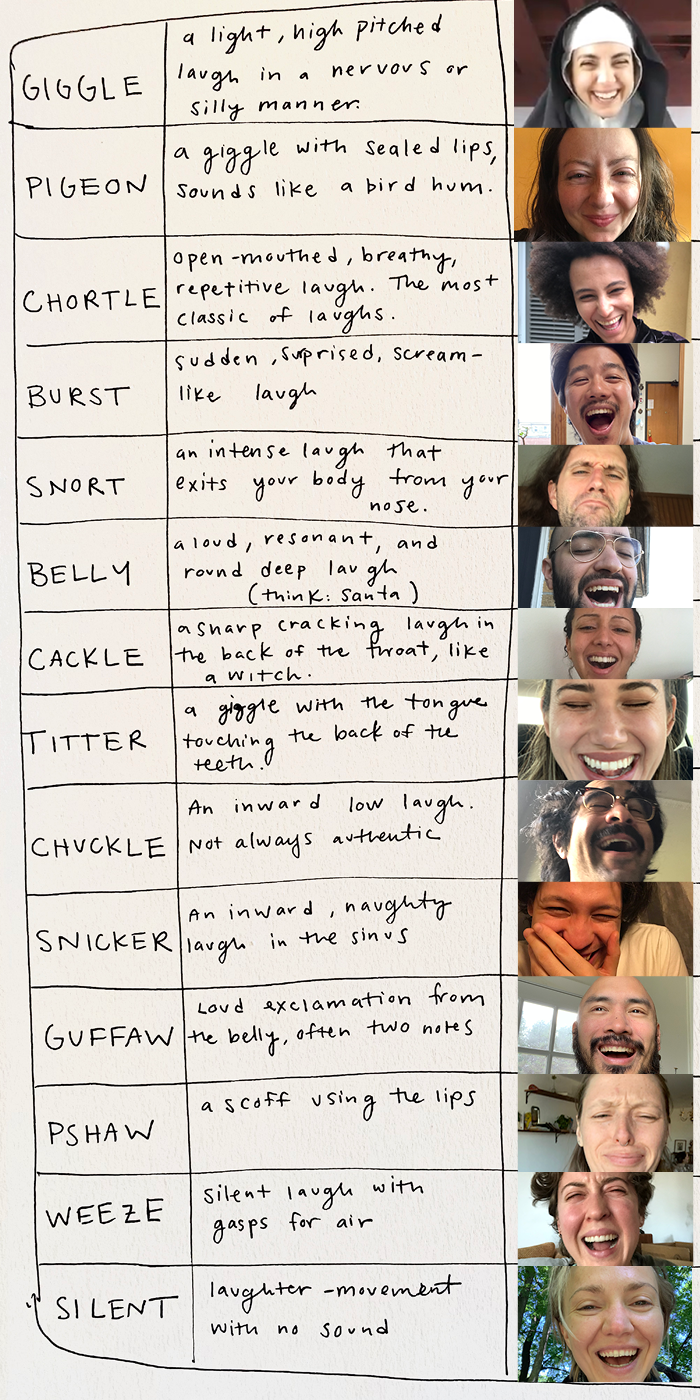 GIGGLE
a light, high pitched
laugh in a nervous or
silly manner.
PIGEON
a giggle with sealed lips,
sounds like a bird hum.
CHORTLE
open-mouthed, breathy,
repetitive laugh. The most
classic of laughs.
BURST
sudden, suprised, scream-
like laugh
SNORT
an intense laugh that
exits your body from your
nose.
BELLY
a loud, resonant, and
round deep laugh
(think: Santa)
CACKLE
a sharp cracking laugh in
the back of the throat, like
a witch.
TITTER
a giggle with the tongue
touching the back of the
teeth.
CHUCKLE
An inward low laugh.
Not always authentic
SNICKER
An inward, naughty
laugh in the sinus
GUFFAW
Loud exclamation from
the belly, often two notes
PSHAW
a scoff using the lips
WEEZE
silent laugh with
gasps for air
SILENT
laughter-movement
with no sound